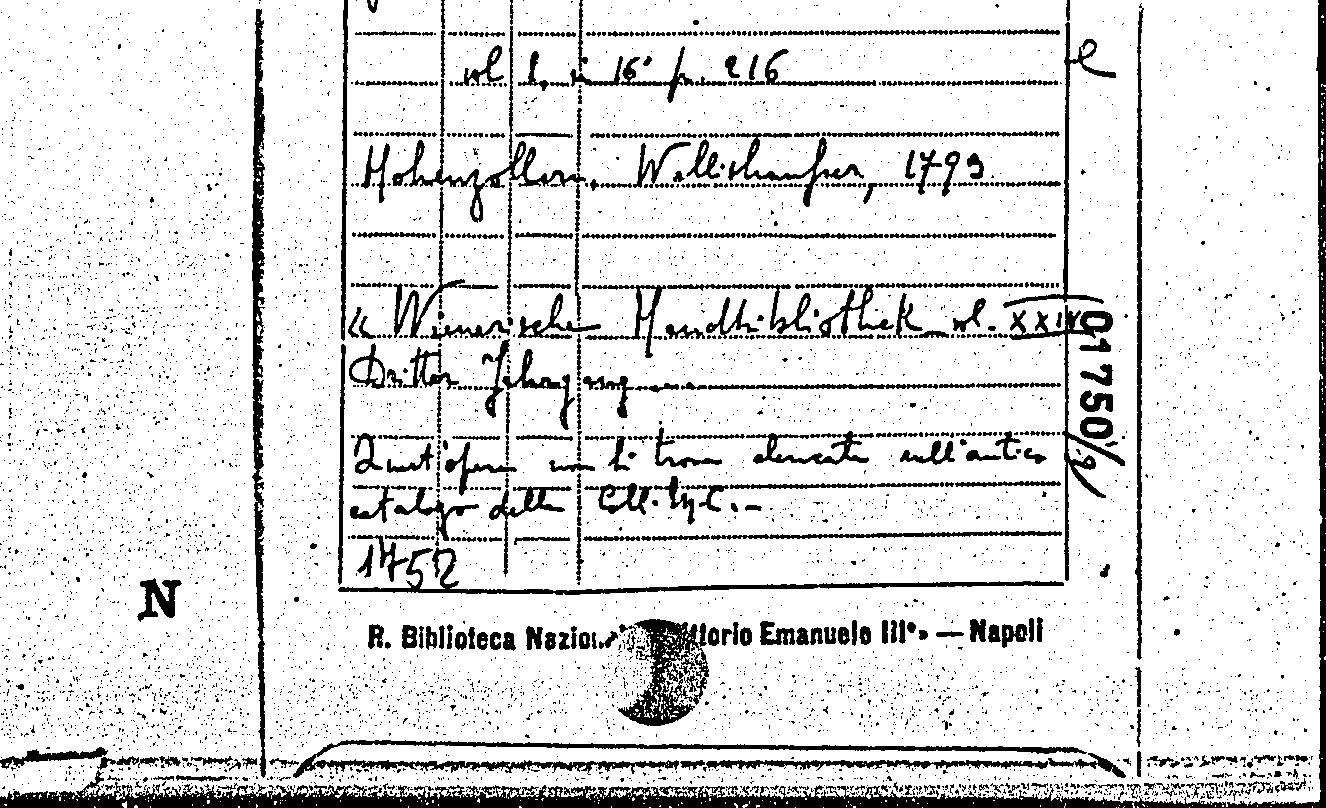 vol 1, in 16° p. 216
Hohenzollern, Wallishausser, 1793
« Wienerische Handbibliothek vol. XXIV
Dritter Jahrgang
Quest'opera non si trova elencata sull'antico
catalogo della Coll.
1752
01750/2
N
R. Biblioteca Nazion ttorio Emanuele III°» — Napoli